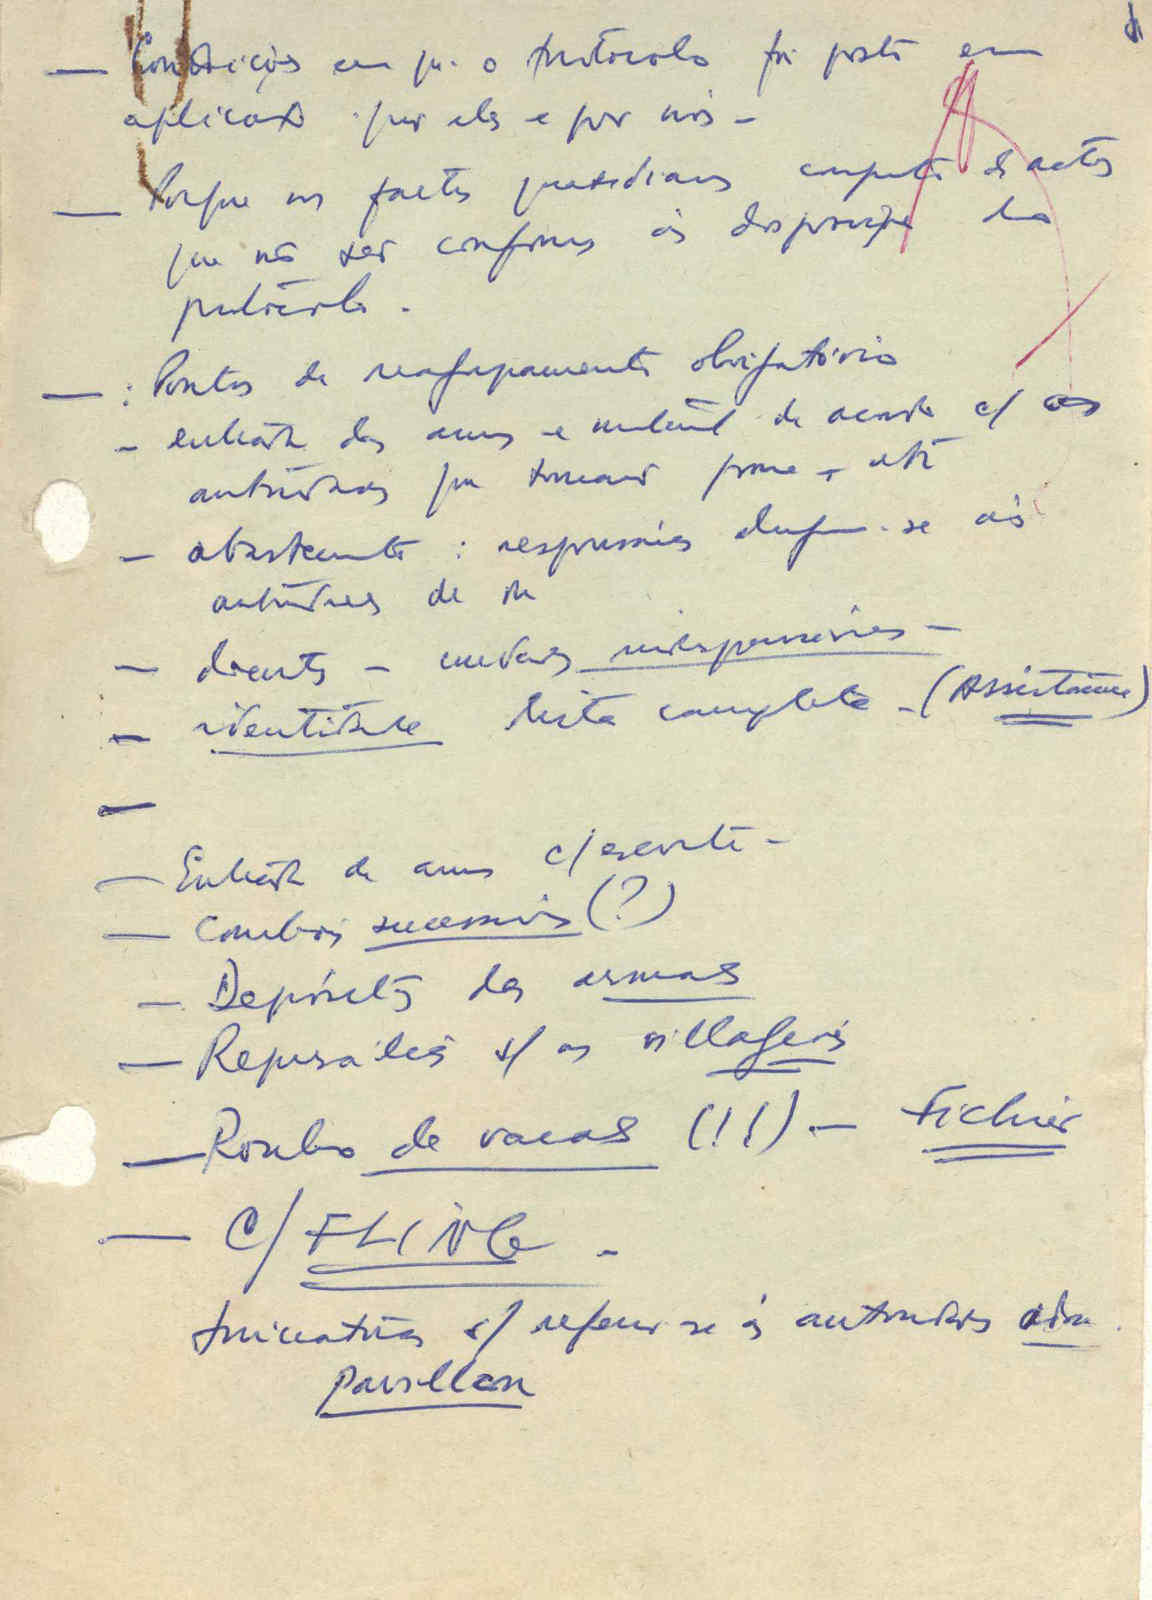 — Condições em que o protocolo foi posto em
aplicação por eles e por nós –
— Porque os factos quotidianos de actos
que não são conformes às disposições do
protocolo.
— : Pontos de reagrupamento obrigatório
– entrada das armas e material de acordo c/ as
autoridades que tomam até
– abastecimento : responsáveis dirigem-se às
autoridades de
– doentes – indispensáveis –
– identidade lista completa – (Assistance)
—
— Entrada de armas c/ escolta –
— Comboios sucessivos (?)
– Depósitos das armas
— Represálias s/ os villageois
— Roubo de vacas (!!) – Fichier
— C/ FLING –
s/ referir-se às autoridades adm.
Pavillon